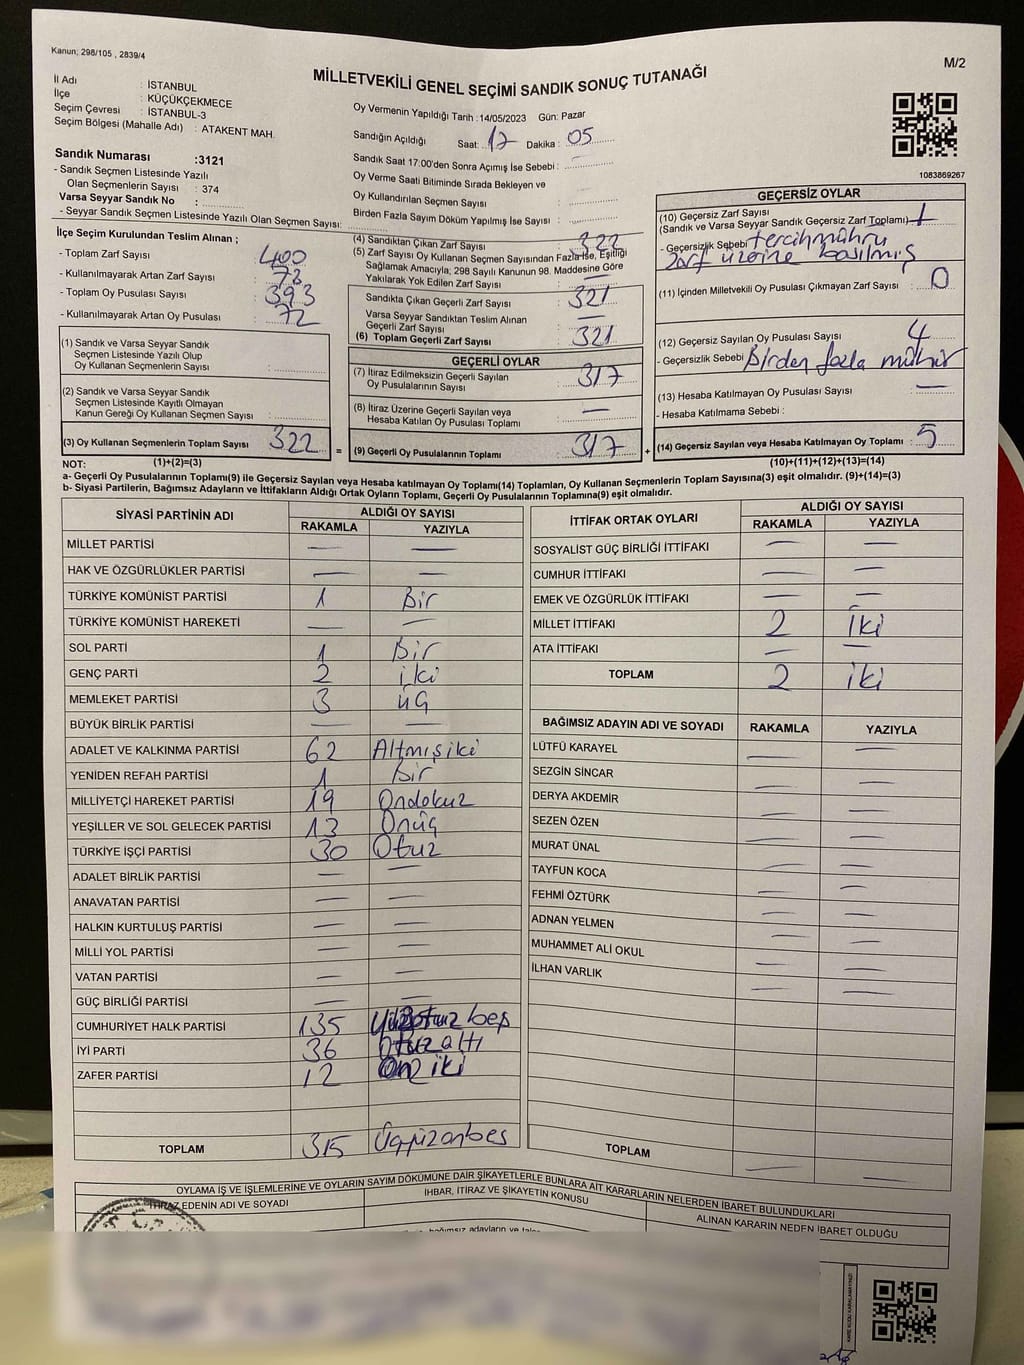 Kanun; 298/105 , 2839/4
M/2
MİLLETVEKİLİ GENEL SEÇİMİ SANDIK SONUÇ TUTANAĞI
İl Adı : İSTANBUL
İlçe : KÜÇÜKÇEKMECE
Seçim Çevresi : İSTANBUL-3
Seçim Bölgesi (Mahalle Adı) : ATAKENT MAH.
Sandık Numarası :3121
- Sandık Seçmen Listesinde Yazılı
Olan Seçmenlerin Sayısı : 374
Varsa Seyyar Sandık No :
- Seyyar Sandık Seçmen Listesinde Yazılı Olan Seçmen Sayısı:
Oy Vermenin Yapıldığı Tarih :14/05/2023 Gün: Pazar
Sandığın Açıldığı Saat: 17 Dakika : 05
Sandık Saat 17:00'den Sonra Açımış İse Sebebi :
Oy Verme Saati Bitiminde Sırada Bekleyen ve
Oy Kullandırılan Seçmen Sayısı :
Birden Fazla Sayım Döküm Yapılmış İse Sayısı :
1083869267
İlçe Seçim Kurulundan Teslim Alınan ;
- Toplam Zarf Sayısı : 400
- Kullanılmayarak Artan Zarf Sayısı : 78
- Toplam Oy Pusulası Sayısı : 393
- Kullanılmayarak Artan Oy Pusulası : 72
(1) Sandık ve Varsa Seyyar Sandık
Seçmen Listesinde Yazılı Olup
Oy Kullanan Seçmenlerin Sayısı :
(2) Sandık ve Varsa Seyyar Sandık
Seçmen Listesinde Kayıtlı Olmayan
Kanun Gereği Oy Kullanan Seçmen Sayısı :
(3) Oy Kullanan Seçmenlerin Toplam Sayısı 322
(1)+(2)=(3)
(4) Sandıktan Çıkan Zarf Sayısı : 322
(5) Zarf Sayısı Oy Kullanan Seçmen Sayısından Fazla İse, Eşitliği
Sağlamak Amacıyla, 298 Sayılı Kanunun 98. Maddesine Göre
Yakılarak Yok Edilen Zarf Sayısı :
Sandıkta Çıkan Geçerli Zarf Sayısı : 321
Varsa Seyyar Sandıktan Teslim Alınan
Geçerli Zarf Sayısı : —
(6) Toplam Geçerli Zarf Sayısı : 321
GEÇERLİ OYLAR
(7) İtiraz Edilmeksizin Geçerli Sayılan
Oy Pusulalarının Sayısı : 317
(8) İtiraz Üzerine Geçerli Sayılan veya
Hesaba Katılan Oy Pusulası Toplamı : —
= (9) Geçerli Oy Pusulalarının Toplamı : 317 +
GEÇERSİZ OYLAR
(10) Geçersiz Zarf Sayısı
(Sandık ve Varsa Seyyar Sandık Geçersiz Zarf Toplamı) 1
- Geçersizlik Sebebi : tercih mührü
zarf üzerine basılmış
(11) İçinden Milletvekili Oy Pusulası Çıkmayan Zarf Sayısı : 0
(12) Geçersiz Sayılan Oy Pusulası Sayısı : 4
- Geçersizlik Sebebi Birden fazla mühür
(13) Hesaba Katılmayan Oy Pusulası Sayısı : —
- Hesaba Katılmama Sebebi :
(14) Geçersiz Sayılan veya Hesaba Katılmayan Oy Toplamı : 5
(10)+(11)+(12)+(13)=(14)
NOT:
a- Geçerli Oy Pusulalarının Toplamı(9) ile Geçersiz Sayılan veya Hesaba katılmayan Oy Toplamı(14) Toplamları, Oy Kullanan Seçmenlerin Toplam Sayısına(3) eşit olmalıdır. (9)+(14)=(3)
b- Siyasi Partilerin, Bağımsız Adayların ve İttifakların Aldığı Ortak Oyların Toplamı, Geçerli Oy Pusulalarının Toplamına(9) eşit olmalıdır.
SİYASİ PARTİNİN ADI ALDIĞI OY SAYISI
RAKAMLA YAZIYLA
MİLLET PARTİSİ — —
HAK VE ÖZGÜRLÜKLER PARTİSİ — —
TÜRKİYE KOMÜNİST PARTİSİ 1 Bir
TÜRKİYE KOMÜNİST HAREKETİ — —
SOL PARTİ 1 Bir
GENÇ PARTİ 2 iki
MEMLEKET PARTİSİ 3 üç
BÜYÜK BİRLİK PARTİSİ — —
ADALET VE KALKINMA PARTİSİ 62 Altmışiki
YENİDEN REFAH PARTİSİ 1 Bir
MİLLİYETÇİ HAREKET PARTİSİ 19 Ondokuz
YEŞİLLER VE SOL GELECEK PARTİSİ 13 Onüç
TÜRKİYE İŞÇİ PARTİSİ 30 Otuz
ADALET BİRLİK PARTİSİ — —
ANAVATAN PARTİSİ — —
HALKIN KURTULUŞ PARTİSİ — —
MİLLİ YOL PARTİSİ — —
VATAN PARTİSİ — —
GÜÇ BİRLİĞİ PARTİSİ — —
CUMHURİYET HALK PARTİSİ 135 Yüzotuzbeş
İYİ PARTİ 36 Otuzaltı
ZAFER PARTİSİ 12 Oniki
TOPLAM 315 Üçyüzonbeş
İTTİFAK ORTAK OYLARI ALDIĞI OY SAYISI
RAKAMLA YAZIYLA
SOSYALİST GÜÇ BİRLİĞİ İTTİFAKI — —
CUMHUR İTTİFAKI — —
EMEK VE ÖZGÜRLÜK İTTİFAKI — —
MİLLET İTTİFAKI 2 İki
ATA İTTİFAKI — —
TOPLAM 2 iki
BAĞIMSIZ ADAYIN ADI VE SOYADI RAKAMLA YAZIYLA
LÜTFÜ KARAYEL — —
SEZGİN SİNCAR — —
DERYA AKDEMİR — —
SEZEN ÖZEN — —
MURAT ÜNAL — —
TAYFUN KOCA — —
FEHMİ ÖZTÜRK — —
ADNAN YELMEN — —
MUHAMMET ALİ OKUL — —
İLHAN VARLIK — —
TOPLAM — —
OYLAMA İŞ VE İŞLEMLERİNE VE OYLARIN SAYIM DÖKÜMÜNE DAİR ŞİKAYETLERLE BUNLARA AİT KARARLARIN NELERDEN İBARET BULUNDUKLARI
İTİRAZ EDENİN ADI VE SOYADI
İHBAR, İTİRAZ VE ŞİKAYETİN KONUSU
ALINAN KARARIN NEDEN İBARET OLDUĞU
bağımsız adayların ve